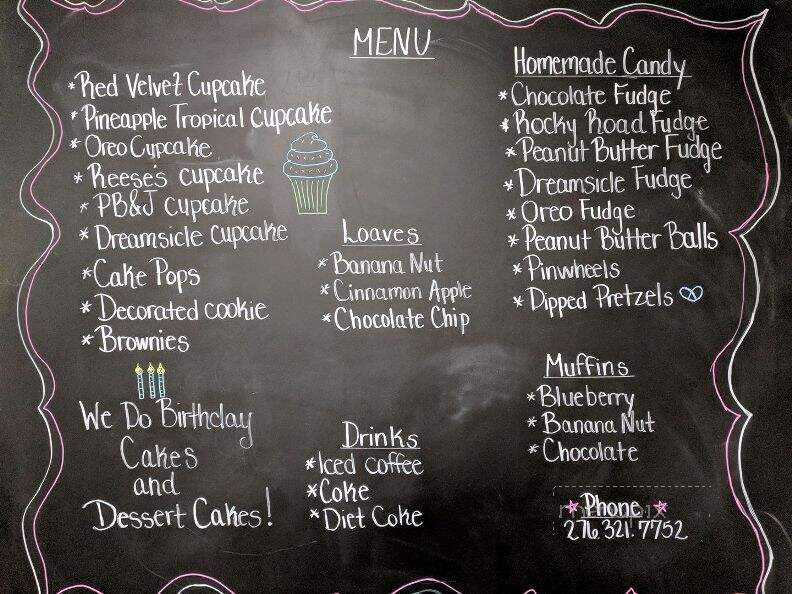 MENU
*Red Velvet Cupcake
*Pineapple Tropical Cupcake
*Oreo Cupcake
*Reese's cupcake
*PB&J cupcake
*Dreamsicle cupcake
*Cake Pops
*Decorated cookie
*Brownies
We Do Birthday
Cakes
and
Dessert Cakes!
Loaves
*Banana Nut
*Cinnamon Apple
*Chocolate Chip
Drinks
*Iced coffee
*Coke
*Diet Coke
Homemade Candy
*Chocolate Fudge
*Rocky Road Fudge
*Peanut Butter Fudge
*Dreamsicle Fudge
*Oreo Fudge
*Peanut Butter Balls
*Pinwheels
*Dipped Pretzels
Muffins
*Blueberry
*Banana Nut
*Chocolate
Phone
276.321.7752